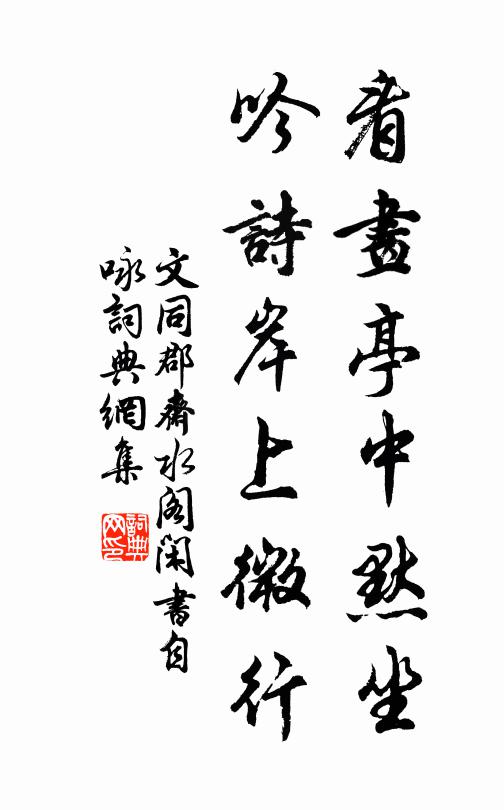 看畫亭中默坐
吟詩岸上微行
文同郡齋水閣閑書自
咏詞典網集
詞典網印